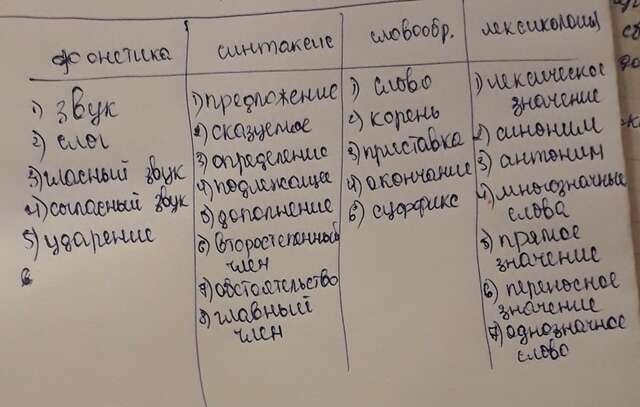 фонетика
1) звук
2) слог
3) гласный звук
4) согласный звук
5) ударение
6
синтаксис
1) предложение
2) сказуемое
3) определение
4) подлежащее
5) дополнение
6) второстепенный
член
7) обстоятельство
8) главный
член
словообр.
1) слово
2) корень
3) приставка
4) окончание
5) суффикс
лексикология
1) лексическое
значение
2) синоним
3) антоним
4) многозначные
слова
5) прямое
значение
6) переносное
значение
7) однозначное
слово